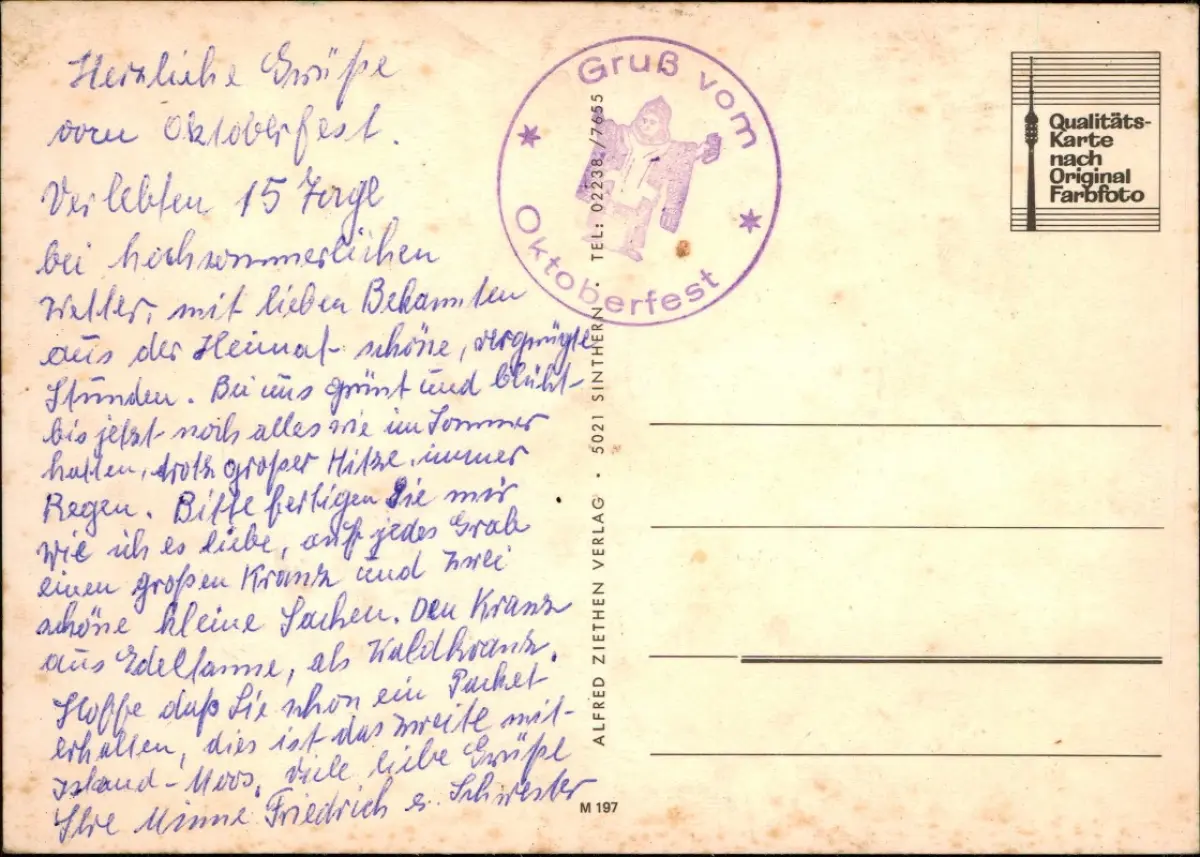 Herzliche Grüße
vom Oktoberfest.
Verlebten 15 Tage
bei hochsommerlichen
Wetter, mit lieben Bekannten
aus der Heimat schöne, vergnügte
Stunden. Bei uns grünt und blüht
bis jetzt noch alles wie im Sommer
hatten, trotz großer Hitze, immer
Regen. Bitte fertigen Sie mir
wie ich es liebe, auf jedes Grab
einen großen Kranz und zwei
schöne kleine Sachen. Den Kranz
aus Edeltanne, als Waldkranz.
Hoffe daß Sie schon ein Packet
erhalten, dies ist das zweite mit
Island-Moos. Viele liebe Grüße
Ihre Minne Friedrich u. Schwester
Gruß vom
Oktoberfest
ALFRED ZIETHEN VERLAG · 5021 SINTHERN · TEL: 02238/7655
M 197
Qualitäts-
Karte
nach
Original
Farbfoto